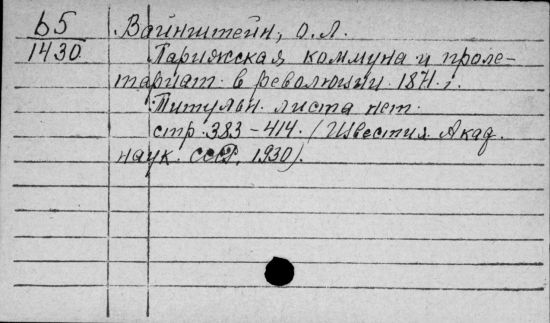 б5 Вайнштейн, О.Л.
1430 Парижская коммуна и проле-
тариат в революции 1871 г.
Титульн. листа нет.
стр. 383-414. (Известия Акад.
наук. СССР. 1930).